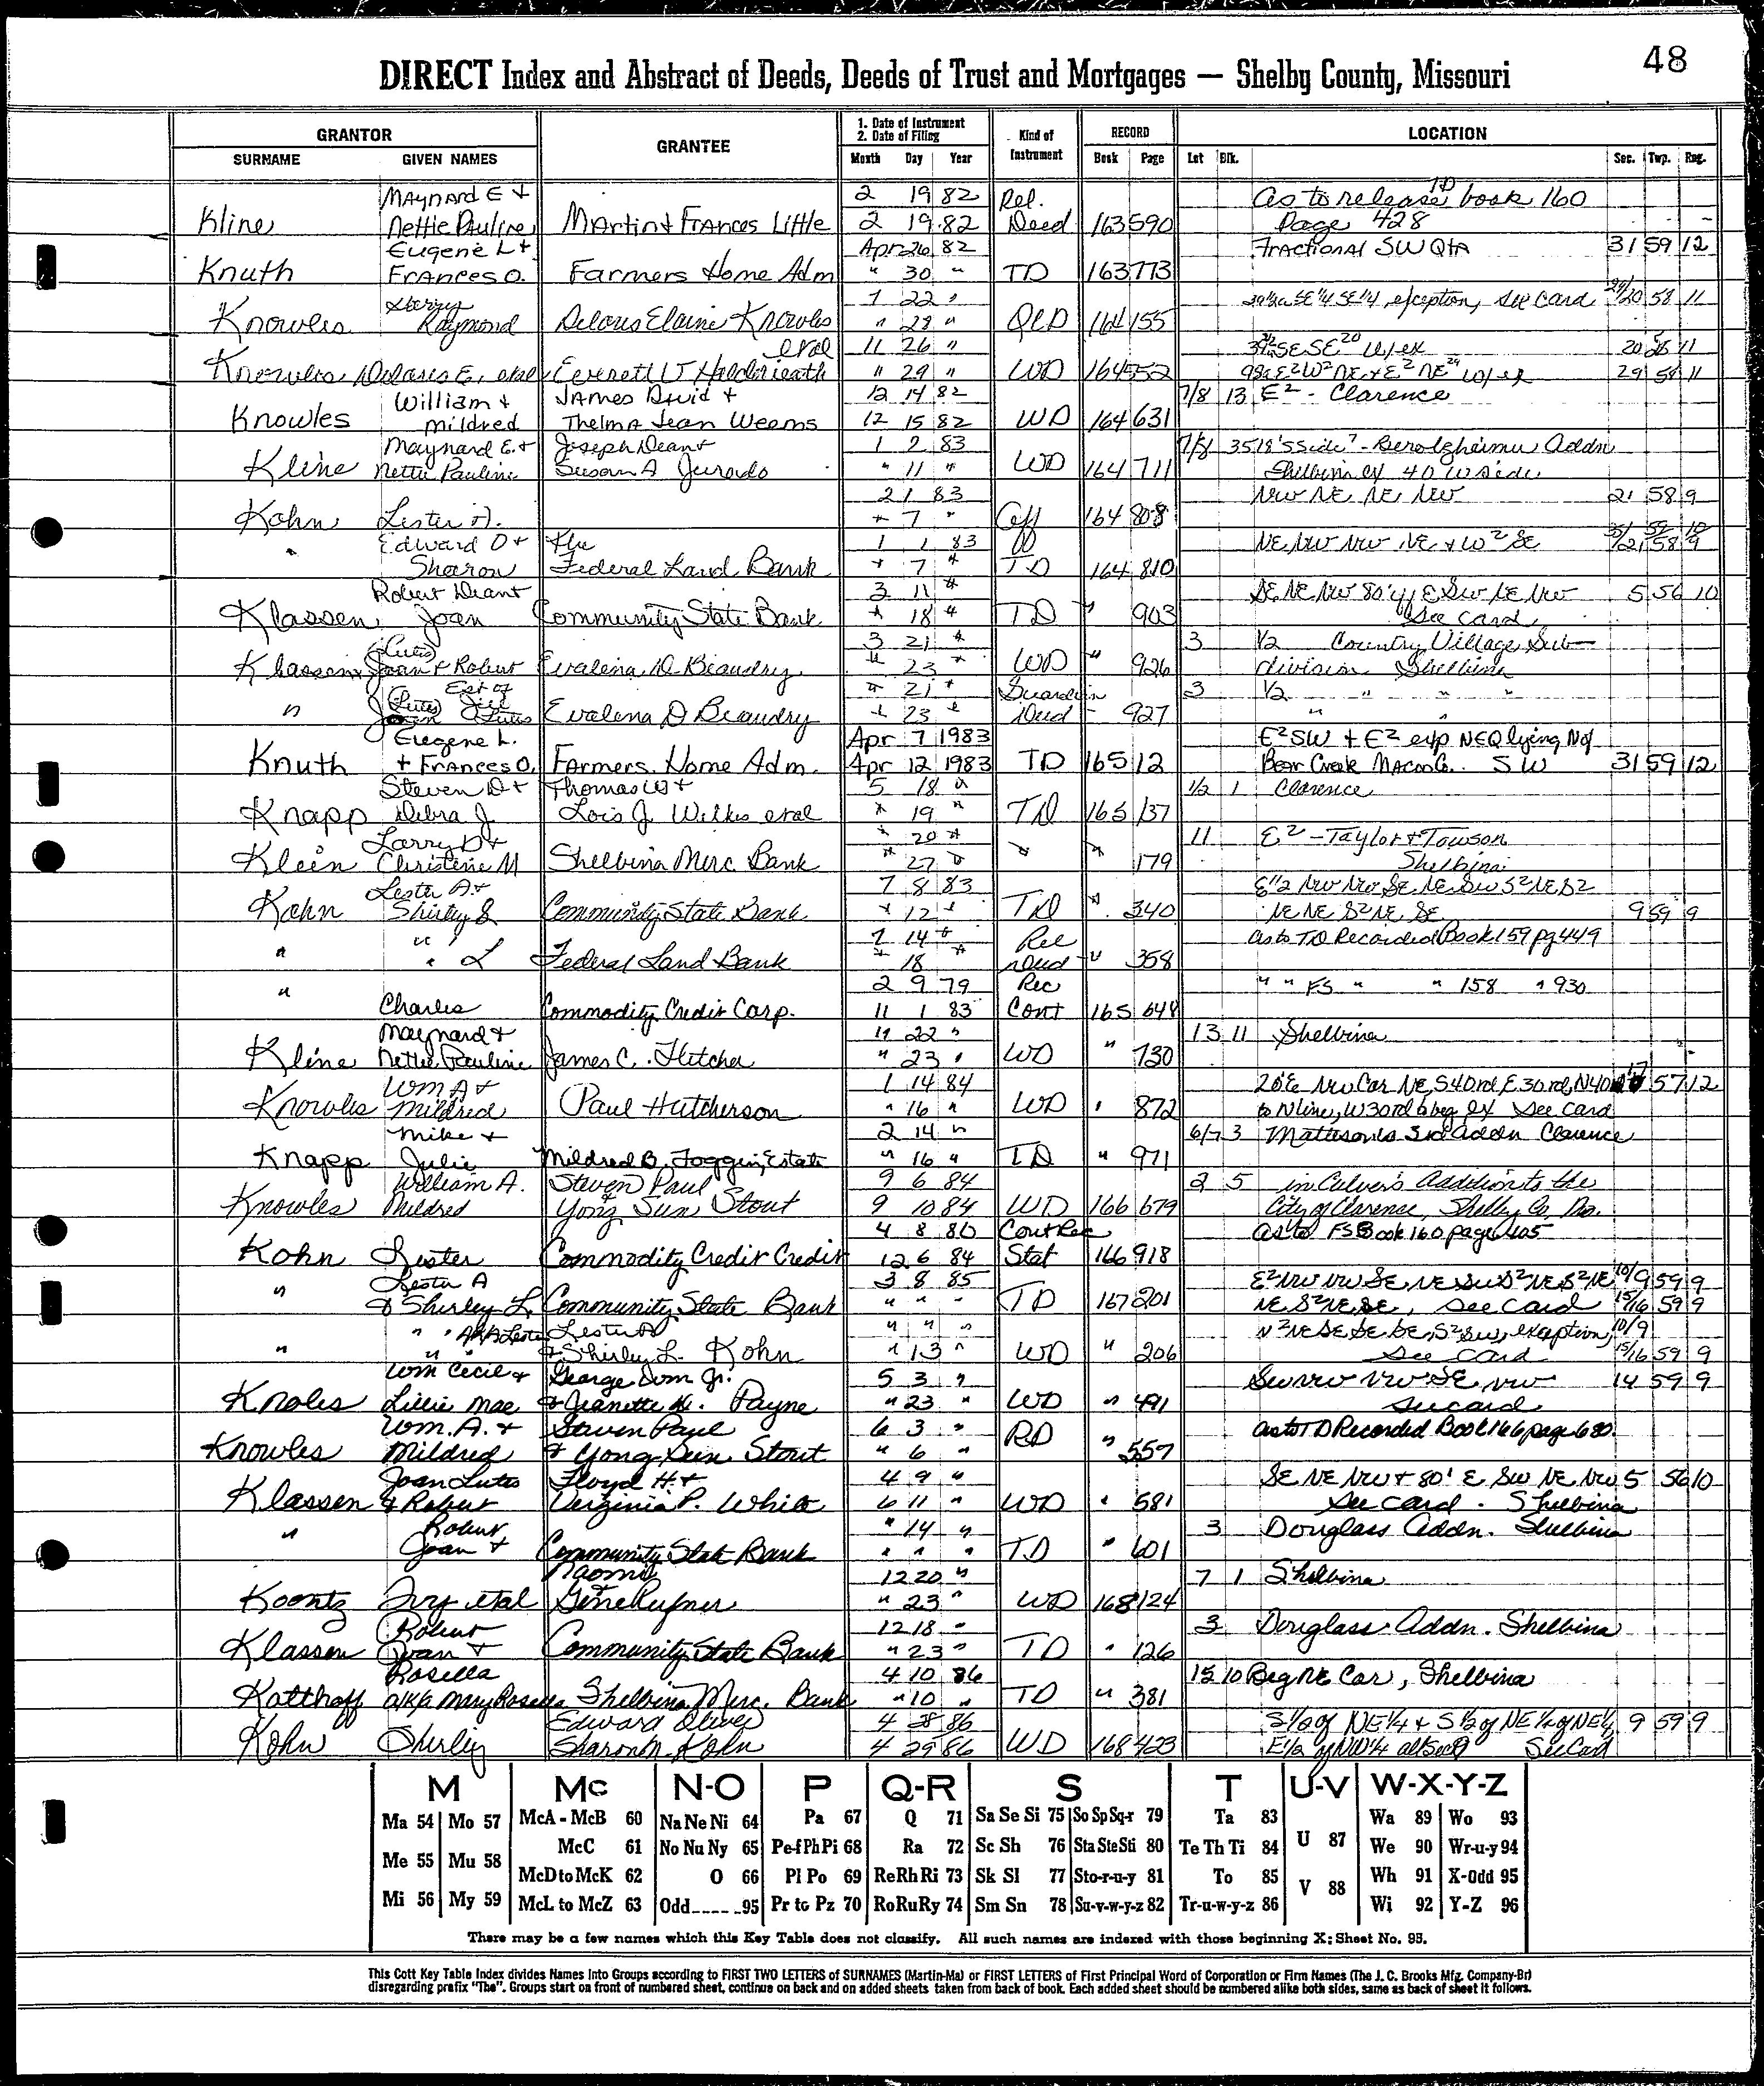 48
DIRECT Index and Abstract of Deeds, Deeds of Trust and Mortgages — Shelby County, Missouri
GRANTOR GRANTEE 1. Date of Instrument 2. Date of Filing Kind of Instrument RECORD LOCATION
SURNAME GIVEN NAMES Month Day Year Book Page Lot Blk. Sec. Twp. Rng.
Maynard E + 2 19 82 Rel. As to release TD book 160
Kline Nettie Pauline Martin + Frances Little 2 19 82 Deed 163 590 Page 428
Eugene L + Apr 26 82 Fractional SW Qtr 31 59 12
Knuth Frances O. Farmers Home Adm " 30 " TD 163 773
Sherry 7 22 " SE 1/4 SE 1/4 exception, see card 29/20 58 11
Knowles Raymond Deloris Elaine Knowles " 28 " QCD 164 155
etal 11 26 " SE SE 20 W/ex 20 58 11
Knowles Deloris E. etal Everett W " 29 " WD 164 552 E2 W2 NE + E2 NE 29 W/ex 29 58 11
William + James David + 12 14 82 7/8 13 E2 - Clarence
Knowles Mildred Thelma Jean Weems 12 15 82 WD 164 631
Maynard E. + Joseph Dean + 1 2 83 7/8 35 18' S Side 7 - Addn
Kline Nettie Pauline Susan A Jurado " 11 " WD 164 711 Shelbina ex 40 W Side
2 1 83 NW NE, NE NW 21 58 9
Kohn Lester A. " 7 " Aff 164 808
Edward O + The 1 1 83 NE NW NW NE + W2 SE 21 58 9
" Sharon Federal Land Bank " 7 " TD 164 810
Robert Dean + 3 11 " SE NE NW 80' of E SW NE NW 5 56 10
Klassen Joan Community State Bank " 18 " TD " 903 See card
(Lutes) 3 21 " 3 1/2 Country Village Sub-
Klassen Joan + Robert Evalena D. Beaudry " 23 " WD " 926 division Shelbina
Est of " 21 " Guardian 3 1/2 " " "
" Evalena D Beaudry " 23 " Deed " 927 " "
Eugene L. Apr 7 1983 E2 SW + E2 exp NEQ lying N of
Knuth + Frances O. Farmers Home Adm. Apr 12 1983 TD 165 12 Bear Creek Macon Co. SW 31 59 12
Steven D + Thomas W + 5 18 " 1/2 1 Clarence
Knapp Debra J Lois J. Wilkes etal " 19 " TD 165 137
Larry D + " 20 " 11 E2 - Taylor + Towson
Klein Christine M Shelbina Merc. Bank " 27 " " " 179 Shelbina
Lester A + 7 8 83 E1/2 NW NW SE NE SW S2 NE S2
Kohn Shirley L Community State Bank " 12 " TD " 340 NE NE S2 NE SE 9 59 9
" " 7 14 " Rel as to TD Recorded Book 159 pg 449
" " L Federal Land Bank " 18 " Deed " 358
" 2 9 79 Rec " " FS " " 158 " 930
Charles Commodity Credit Corp. 11 1 83 Cont 165 648
Maynard + 11 22 " 13 11 Shelbina
Kline Nettie Pauline James C. Fletcher " 23 " WD " 730
WM A + 1 14 84 20' E NW Cor NE, S 40 rd, E 30 rd, N 40 17 57 12
Knowles Mildred Paul Hutcherson " 16 " WD " 872 to N line, W 30 rd to beg ex See card
Mike + 2 14 " 6/7 3 Mattison's 3rd Addn Clarence
Knapp Julie Mildred B. Foggin, Estate " 16 " TD " 971
William A. Steven Paul 9 6 84 2 5 in Culver's Addition to the
Knowles Mildred Yong Sun Stout 9 10 84 WD 166 679 City of Clarence, Shelby Co, Mo.
4 8 80 Cont Rec as to FS Book 160 page 405
Kohn Lester Commodity Credit Credit 12 6 84 Stat 166 918
" Lester A 3 8 85 E2 NW NW SE NE SW S2 NE S2 NE 10/9 59 9
+ Shirley L. Community State Bank " " " TD 167 201 NE S2 NE SE, See Card 15/16 59 9
" " AKA Lester Lester A " " " N2 NE SE SE SE, S2 SW, exception, 10/9
" " " + Shirley L. Kohn " 13 " WD " 206 See Card 15/16 59 9
Wm Cecil + George Wm Jr. 5 3 " SW NW NW SE NW 14 59 9
Knoles Lillie Mae + Jeanette K. Payne " 23 " WD " 491 See card
Wm. A. + Steven Paul 6 3 " as to TD Recorded Book 166 page 680.
Knowles Mildred + Yong Sun Stout " 6 " RD " 557
Joan Lutes Floyd H. + 4 9 " SE NE NW + 80' E SW NE NW 5 56 10
Klassen + Robert Virginia P. White 6 11 " WD " 581 See card. Shelbina
" Robert " 14 " 3 Douglass Addn. Shelbina
Joan + Community State Bank " " " TD " 601
Naomi + 12 20 " 7 1 Shelbina
Koontz Ivy etal Gene Rufner " 23 " WD 168 124
Robert 12 18 " 3 Douglass Addn. Shelbina
Klassen Joan + Community State Bank " 23 " TD " 126
Rosella 4 10 86 15 10 Beg NE Cor, Shelbina
Katthoff a/k/a Mary Rosella Shelbina Merc. Bank " 10 " TD " 381
Edward Oliver 4 28 86 S 1/2 of NE 1/4 + S 1/2 of NE 1/4 of NE 1/4 9 59 9
Kohn Shirley Sharon M. Kohn 4 29 86 WD 168 423 E 1/2 of NW 1/4 all Sec 9 See Card
M Mc N-O P Q-R S T U-V W-X-Y-Z
Ma 54 Mo 57 McA - McB 60 Na Ne Ni 64 Pa 67 Q 71 Sa Se Si 75 So Sp Sq-r 79 Ta 83 U 87 Wa 89 Wo 93
Me 55 Mu 58 McC 61 No Nu Ny 65 Pe-f Ph Pi 68 Ra 72 Sc Sh 76 Sta Ste Sti 80 Te Th Ti 84 We 90 Wr-u-y 94
McD to McK 62 O 66 Pl Po 69 Re Rh Ri 73 Sk Sl 77 Sto-r-u-y 81 To 85 V 88 Wh 91 X-Odd 95
Mi 56 My 59 McL to McZ 63 Odd 95 Pr to Pz 70 Ro Ru Ry 74 Sm Sn 78 Su-v-w-y-z 82 Tr-u-w-y-z 86 Wi 92 Y-Z 96
There may be a few names which this Key Table does not classify. All such names are indexed with those beginning X; Sheet No. 95.
This Cott Key Table Index divides Names into Groups according to FIRST TWO LETTERS of SURNAMES (Martin-Ma) or FIRST LETTERS of First Principal Word of Corporation or Firm Names (The J. C. Brooks Mfg. Company-Br)
disregarding prefix "The". Groups start on front of numbered sheet, continue on back and on added sheets taken from back of book. Each added sheet should be numbered alike both sides, same as back of sheet it follows.